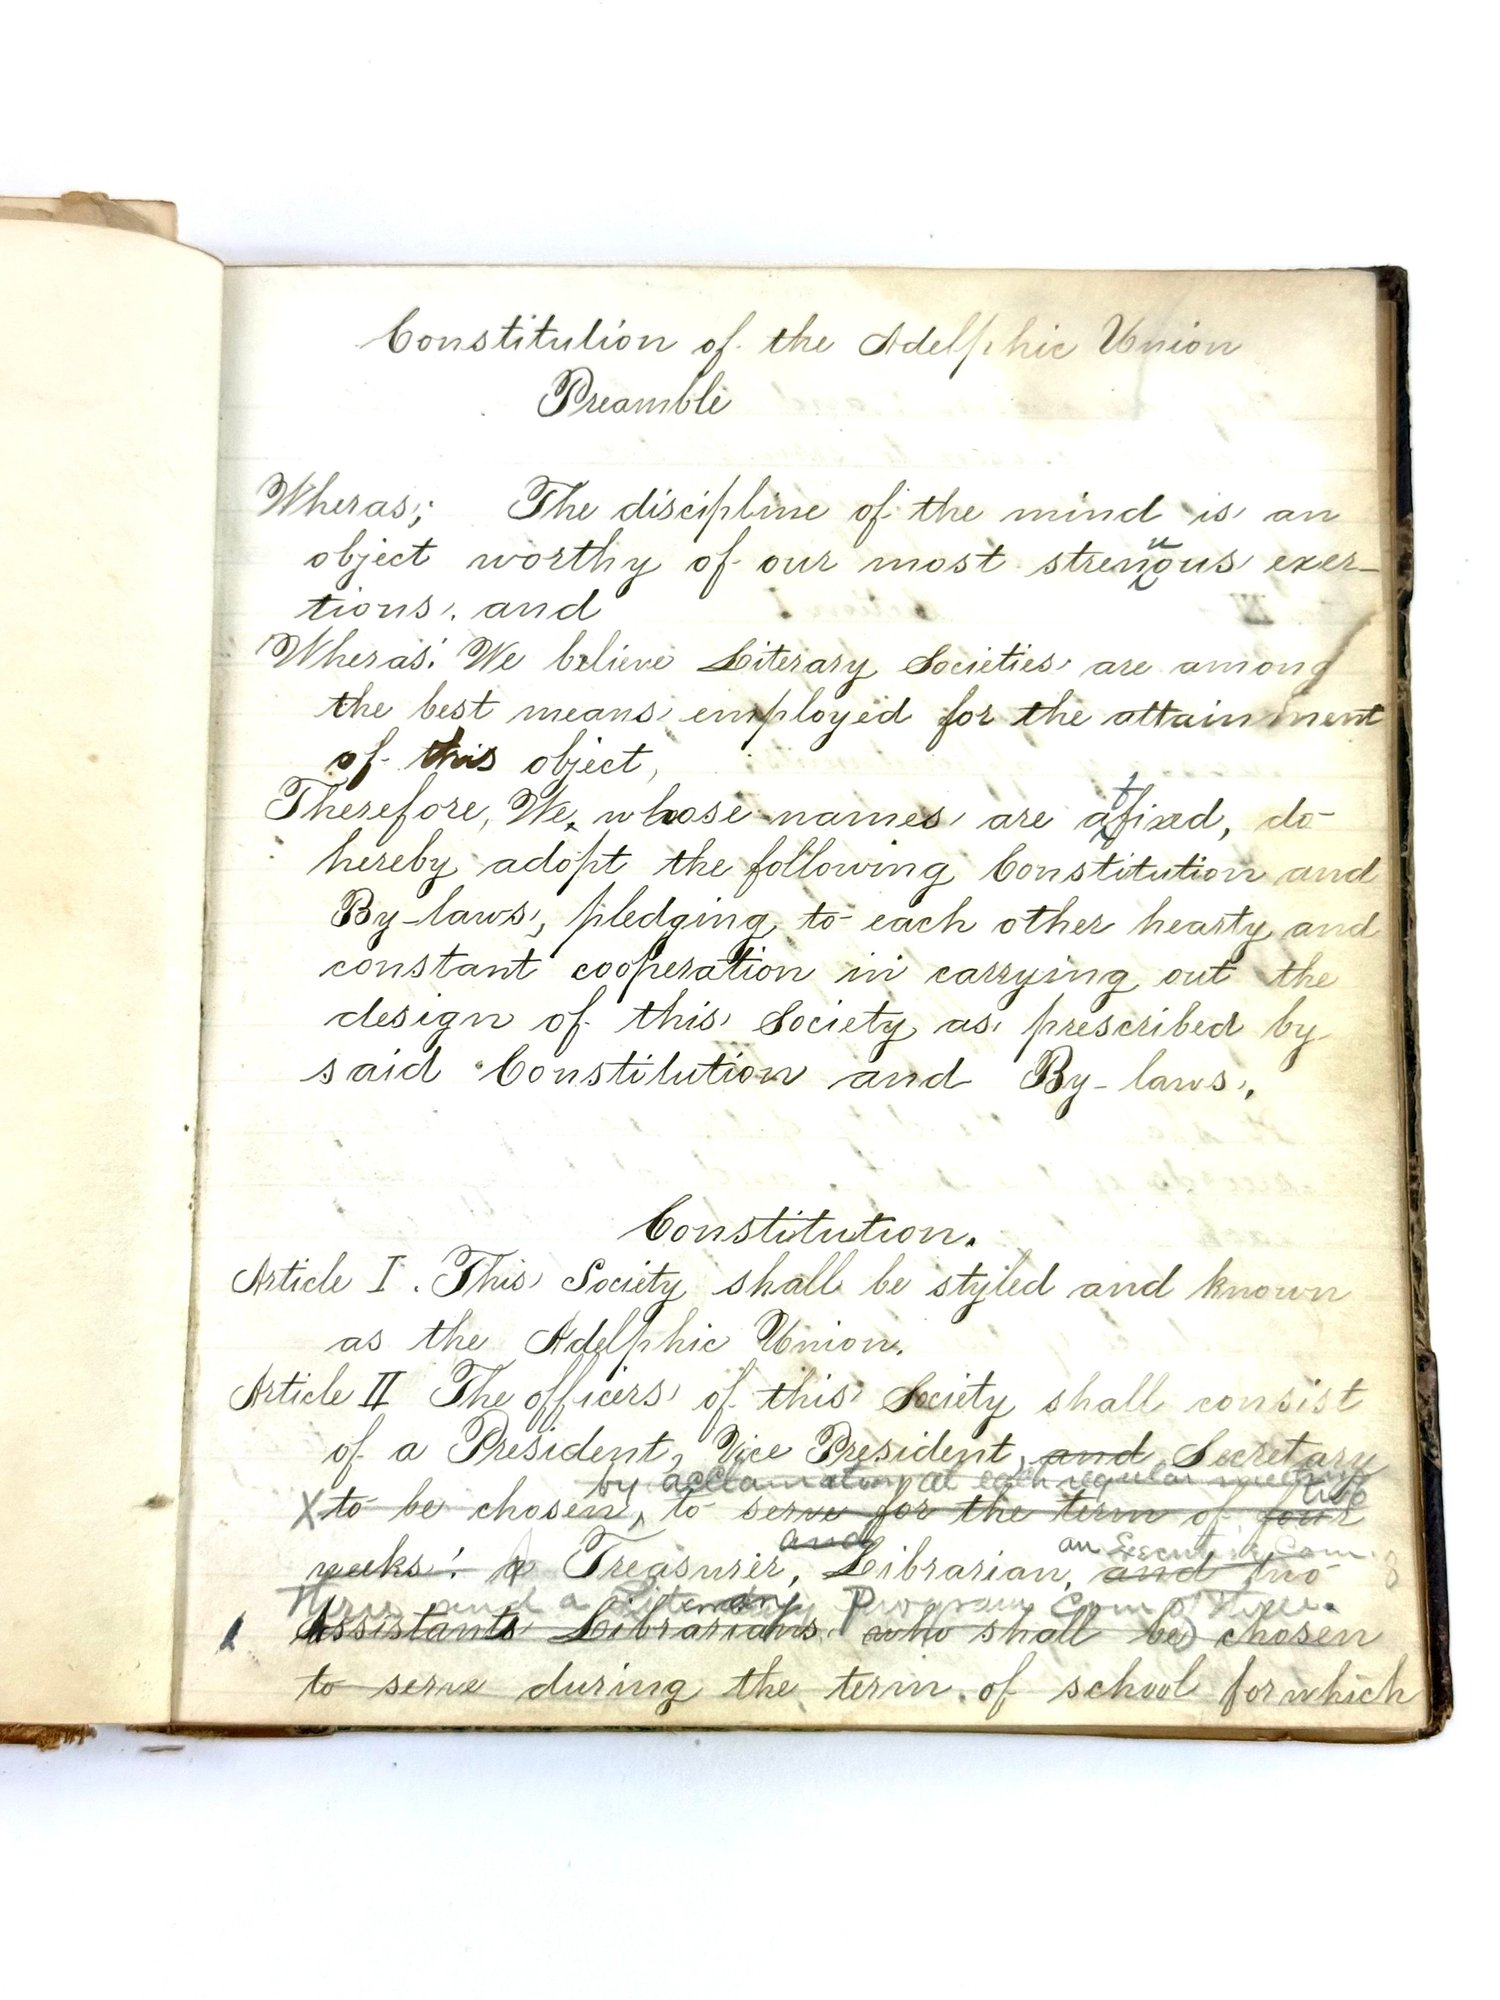 Constitution of the Adelphic Union
Preamble
Wheras; The discipline of the mind is an
object worthy of our most strenuous exer-
tions. and
Wheras. We believe Literary Societies are among
the best means employed for the attainment
of this object,
Therefore, We, whose names are affixed, do
hereby adopt the following Constitution and
By-laws, pledging to each other hearty and
constant cooperation in carrying out the
design of this Society as prescribed by
said Constitution and By-laws.
Constitution.
Article I. This Society shall be styled and known
as the Adelphic Union.
Article II The officers of this Society shall consist
of a President, Vice President, and Secretary
by acclamation at each regular meeting
X to be chosen, to serve for the term of four
and an Com. 3
weeks. a Treasurer, Librarian, and two
Three and a Literary Program Com of Three.
Assistants Librarians who shall be chosen
to serve during the term of school for which